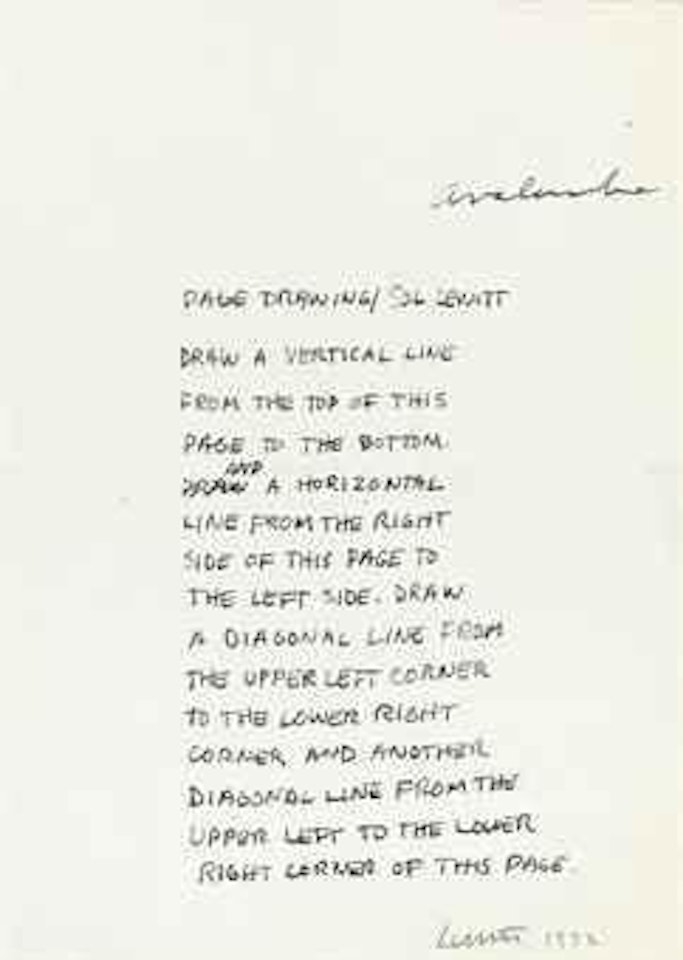 Avalanche
PAGE DRAWING/ SOL LEWITT
DRAW A VERTICAL LINE
FROM THE TOP OF THIS
PAGE TO THE BOTTOM.
AND
DRAW A HORIZONTAL
LINE FROM THE RIGHT
SIDE OF THIS PAGE TO
THE LEFT SIDE. DRAW
A DIAGONAL LINE FROM
THE UPPER LEFT CORNER
TO THE LOWER RIGHT
CORNER AND ANOTHER
DIAGONAL LINE FROM THE
UPPER LEFT TO THE LOWER
RIGHT CORNER OF THIS PAGE.
LEWITT